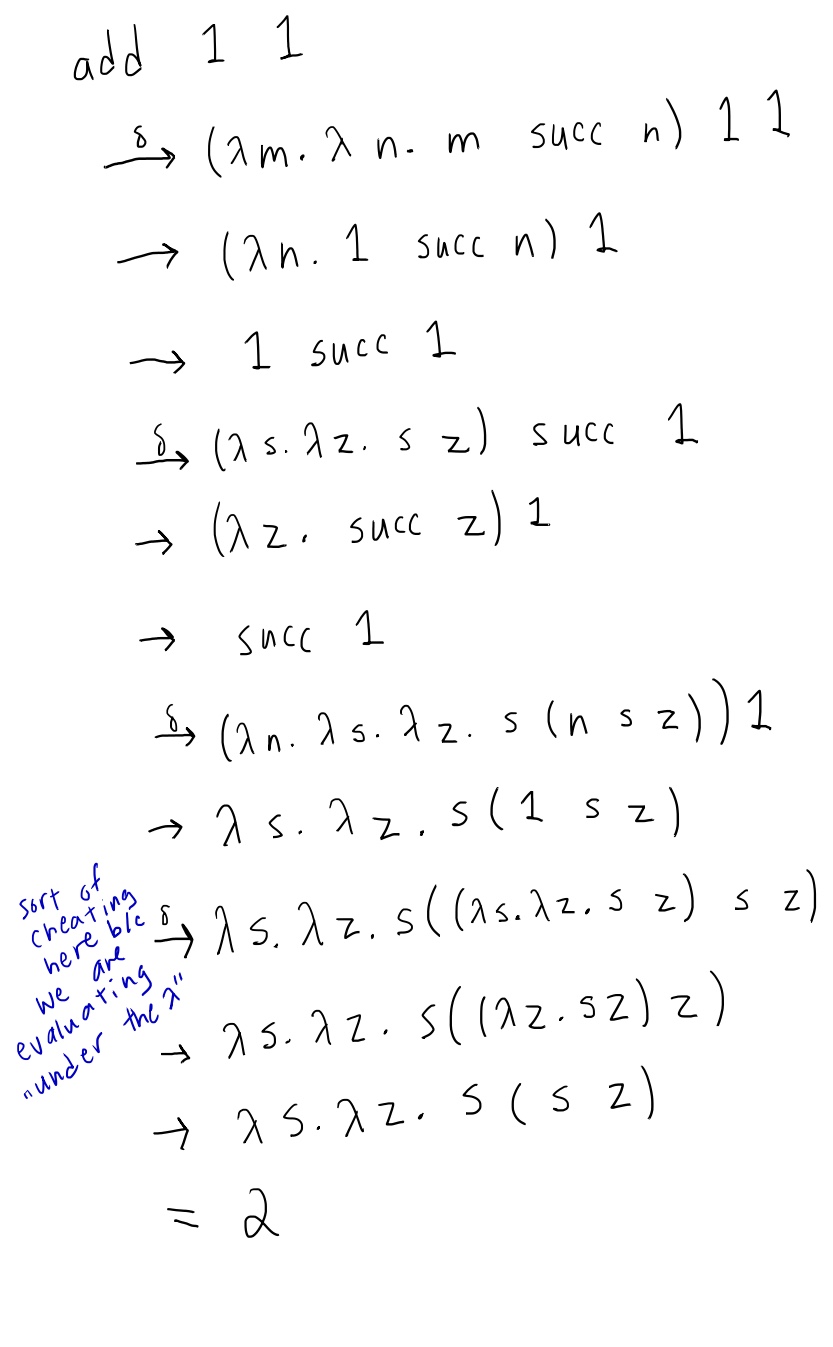 add 1 1
δ→ (λm. λn. m succ n) 1 1
→ (λn. 1 succ n) 1
→ 1 succ 1
δ→ (λs. λz. s z) succ 1
→ (λz. succ z) 1
→ succ 1
δ→ (λn. λs. λz. s (n s z)) 1
→ λs. λz. s (1 s z)
sort of
cheating
here b/c
we are
evaluating
"under the λ"
δ→ λs. λz. s((λs. λz. s z) s z)
→ λs. λz. s((λz. s z) z)
→ λs. λz. s (s z)
= 2